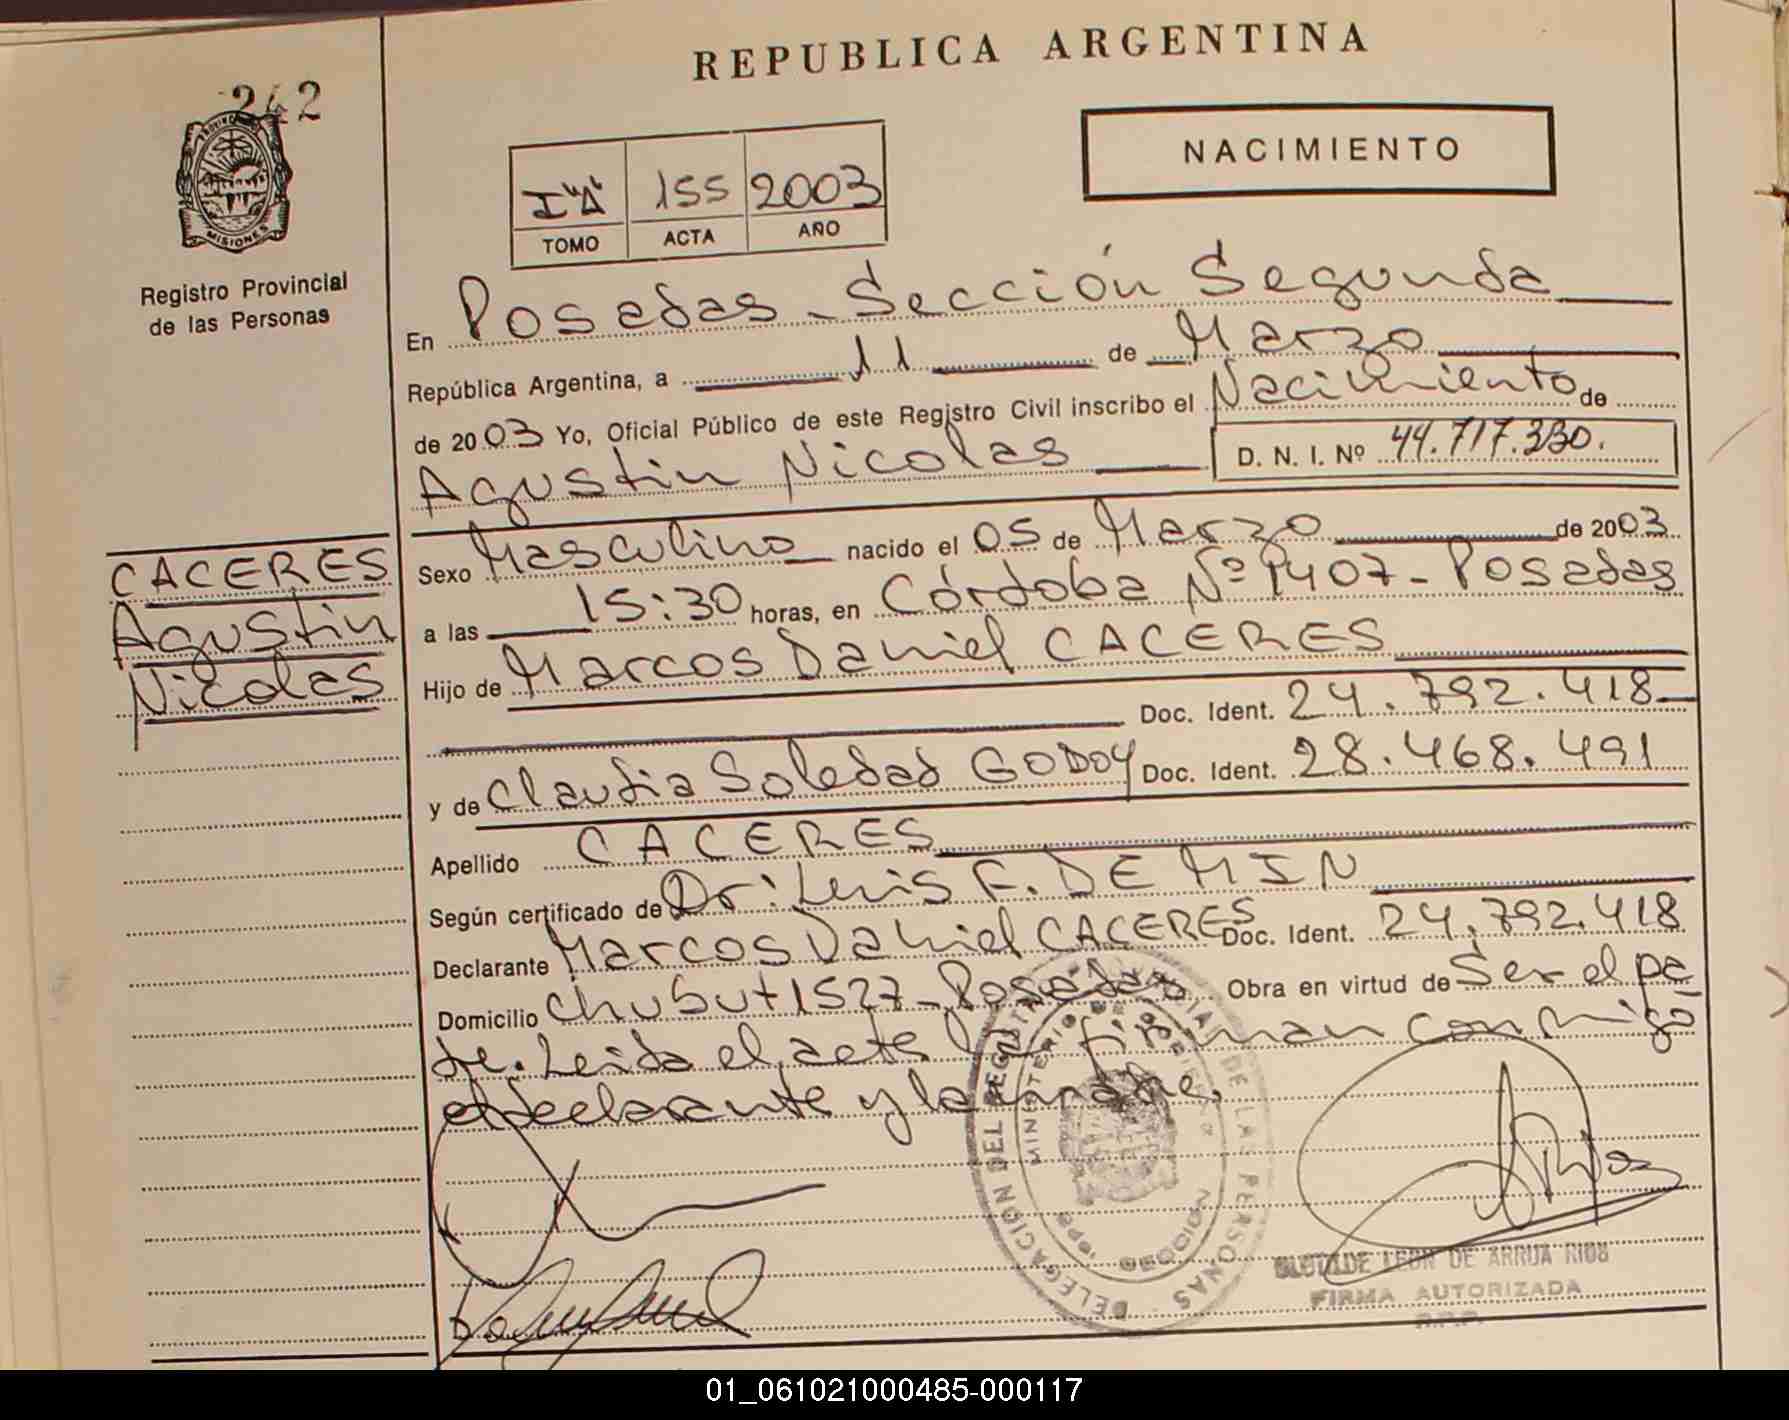 REPUBLICA ARGENTINA
242
NACIMIENTO
PROVINCIA
MISIONES
I "A" 155 2003
TOMO ACTA AÑO
Registro Provincial
de las Personas
En Posadas - Sección Segunda
República Argentina, a 11 de Marzo
de 2003 Yo, Oficial Público de este Registro Civil inscribo el Nacimiento de
Agustin Nicolas D. N. I. Nº 44.717.330.
CACERES
Agustin
Nicolas
Sexo Masculino nacido el 05 de Marzo de 2003
a las 15:30 horas, en Córdoba Nº 1407 - Posadas
Hijo de Marcos Daniel CACERES
Doc. Ident. 24.792.418
y de Claudia Soledad GODOY Doc. Ident. 28.468.491
Apellido CACERES
Según certificado de Dr: Luis F. DE MIN
Declarante Marcos Daniel CACERES Doc. Ident. 24.792.418
Domicilio Chubut 1527 - Posadas Obra en virtud de Ser el pa
dre. Leida el acta la firman conmigo
el declarante y la madre.
DELEGACION DEL REGISTRO DE LAS PERSONAS
MINISTERIO DE GOBIERNO
CLOTILDE LEON DE ARRUA RIOS
FIRMA AUTORIZADA
R.P.P.
01_061021000485-000117